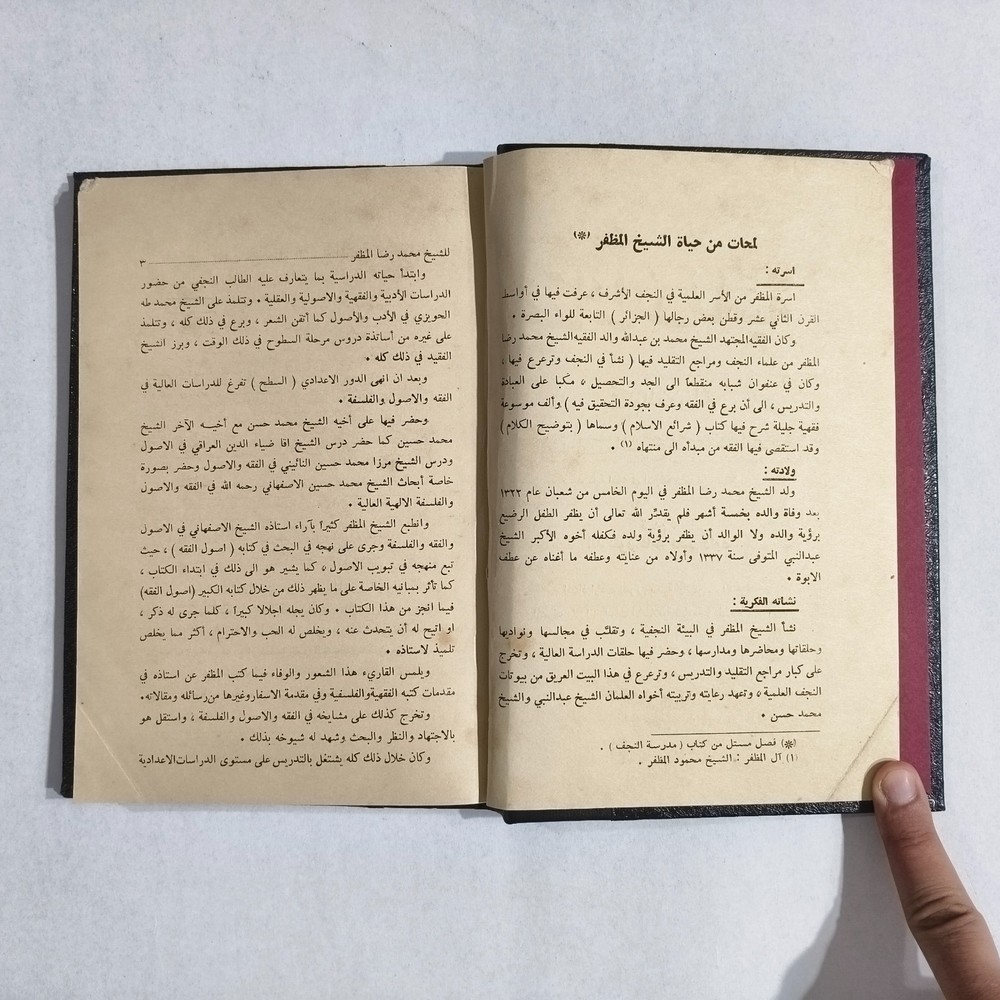 لمحات من حياة الشيخ المظفر (*)
اسرته :
اسرة المظفر من الأسر العلمية في النجف الأشرف ، عرفت فيها في أواسط
القرن الثاني عشر وقطن بعض رجالها ( الجزائر ) التابعة للواء البصرة .
وكان الفقيه المجتهد الشيخ محمد بن عبدالله والد الفقيه الشيخ محمد رضا
المظفر من علماء النجف ومراجع التقليد فيها ( نشأ في النجف وترعرع فيها ،
وكان في عنفوان شبابه منقطعاً الى الجد والتحصيل ، مكبا على العبادة
والتدريس ، الى أن برع في الفقه وعرف بجودة التحقيق فيه ) وألف موسوعة
فقهية جليلة شرح فيها كتاب ( شرائع الاسلام ) وسماها ( بتوضيح الكلام )
وقد استقصى فيها الفقه من مبدأه الى منتهاه (١) .
ولادته :
ولد الشيخ محمد رضا المظفر في اليوم الخامس من شعبان عام ١٣٢٢
بعد وفاة والده بخمسة أشهر فلم يقدّر الله تعالى أن يظفر الطفل الرضيع
برؤية والده ولا الوالد أن يظفر برؤية ولده فكفله أخوه الأكبر الشيخ
عبدالنبي المتوفى سنة ١٣٣٧ وأولاه من عنايته وعطفه ما أغناه عن عطف
الابوة .
نشاته الفكرية :
نشأ الشيخ المظفر في البيئة النجفية ، وتقلّب في مجالسها ونواديها
وحلقاتها ومحاضرها ومدارسها ، وحضر فيها حلقات الدراسة العالية ، وتخرج
على كبار مراجع التقليد والتدريس ، وترعرع في هذا البيت العريق من بيوتات
النجف العلمية ، وتعهد رعايته وتربيته أخواه العلمان الشيخ عبدالنبي والشيخ
محمد حسن .
(*) فصل مستل من كتاب ( مدرسة النجف ) .
(١) آل المظفر : الشيخ محمود المظفر .
للشيخ محمد رضا المظفر ٣
وابتدأ حياته الدراسية بما يتعارف عليه الطالب النجفي من حضور
الدراسات الأدبية والفقهية والاصولية والعقلية . وتتلمذ على الشيخ محمد طه
الحويزي في الأدب والأصول كما أتقن الشعر ، وبرع في ذلك كله ، وتتلمذ
على غيره من أساتذة دروس مرحلة السطوح في ذلك الوقت ، وبرز الشيخ
الفقيد في ذلك كله .
وبعد ان انهى الدور الاعدادي ( السطح ) تفرغ للدراسات العالية في
الفقه والاصول والفلسفة .
وحضر فيها على أخيه الشيخ محمد حسن مع أخيه الآخر الشيخ
محمد حسين كما حضر درس الشيخ اقا ضياء الدين العراقي في الاصول
ودرس الشيخ مرزا محمد حسين النائيني في الفقه والاصول وحضر بصورة
خاصة أبحاث الشيخ محمد حسين الاصفهاني رحمه الله في الفقه والاصول
والفلسفة الالهية العالية .
وانطبع الشيخ المظفر كثيراً بآراء استاذه الشيخ الاصفهاني في الاصول
والفقه والفلسفة وجرى على نهجه في البحث في كتابه ( اصول الفقه ) ، حيث
تبع منهجه في تبويب الاصول ، كما يشير هو الى ذلك في ابتداء الكتاب ،
كما تأثر بمبانيه الخاصة على ما يظهر ذلك من خلال كتابه الكبير (اصول الفقه)
فيما انجز من هذا الكتاب . وكان يجله اجلالا كبيرا ، كلما جرى له ذكر ،
او اتيح له أن يتحدث عنه ، ويخلص له الحب والاحترام ، اكثر مما يخلص
تلميذ لاستاذه .
ويلمس القاريء هذا الشعور والوفاء فيما كتب المظفر عن استاذه في
مقدمات كتبه الفقهية والفلسفية وفي مقدمة الاسفار وغيرها من رسائله ومقالاته.
وتخرج كذلك على مشايخه في الفقه والاصول والفلسفة ، واستقل هو
بالاجتهاد والنظر والبحث وشهد له شيوخه بذلك .
وكان خلال ذلك كله يشتغل بالتدريس على مستوى الدراسات الاعدادية